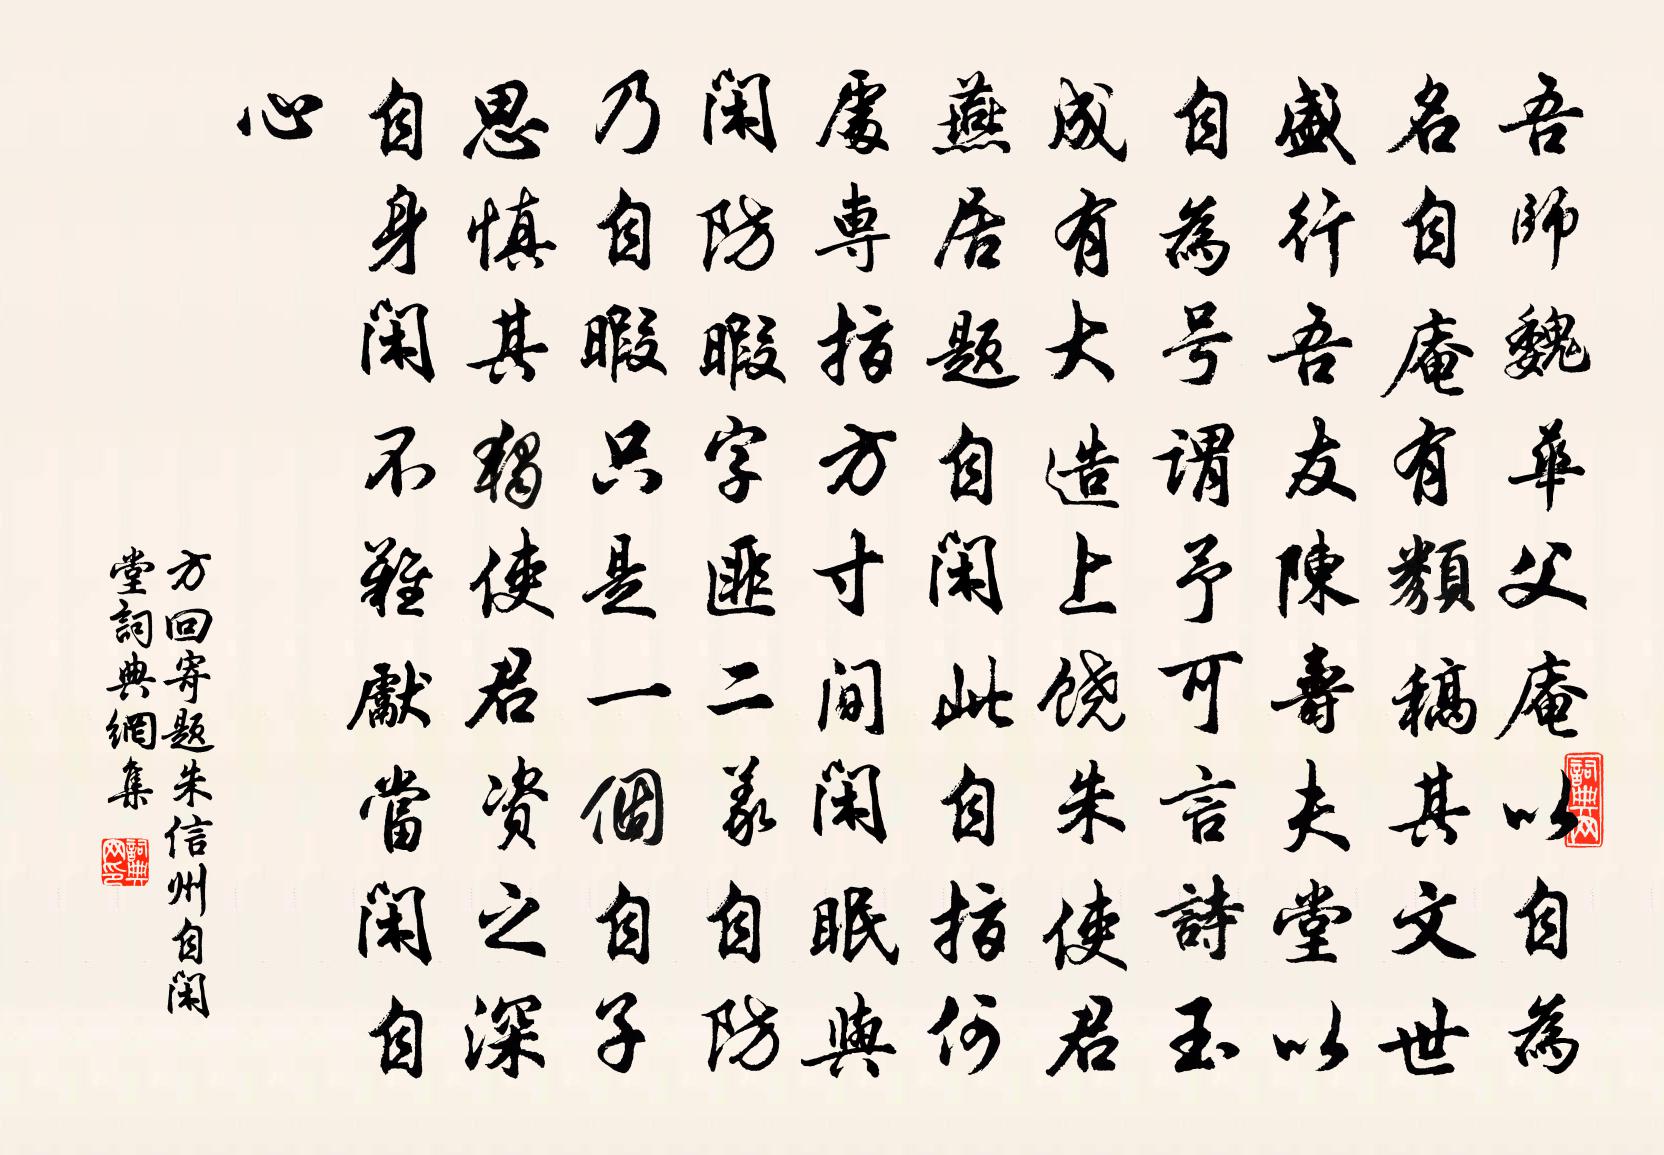 吾師魏華父庵以自為
名自庵有類稿其文世
盛行吾友陳壽夫堂以
自為号謂予可言詩玉
成有大造上饒朱使君
燕居題自閑此自指何
處専指方寸间閑眠與
閑防暇字匪二義自防
乃自暇只是一個自子
思慎其獨使君資之深
自身閑不難獻當閑自
心
方回寄题朱信州自閑
堂詞典網集
詞典网
詞典网印